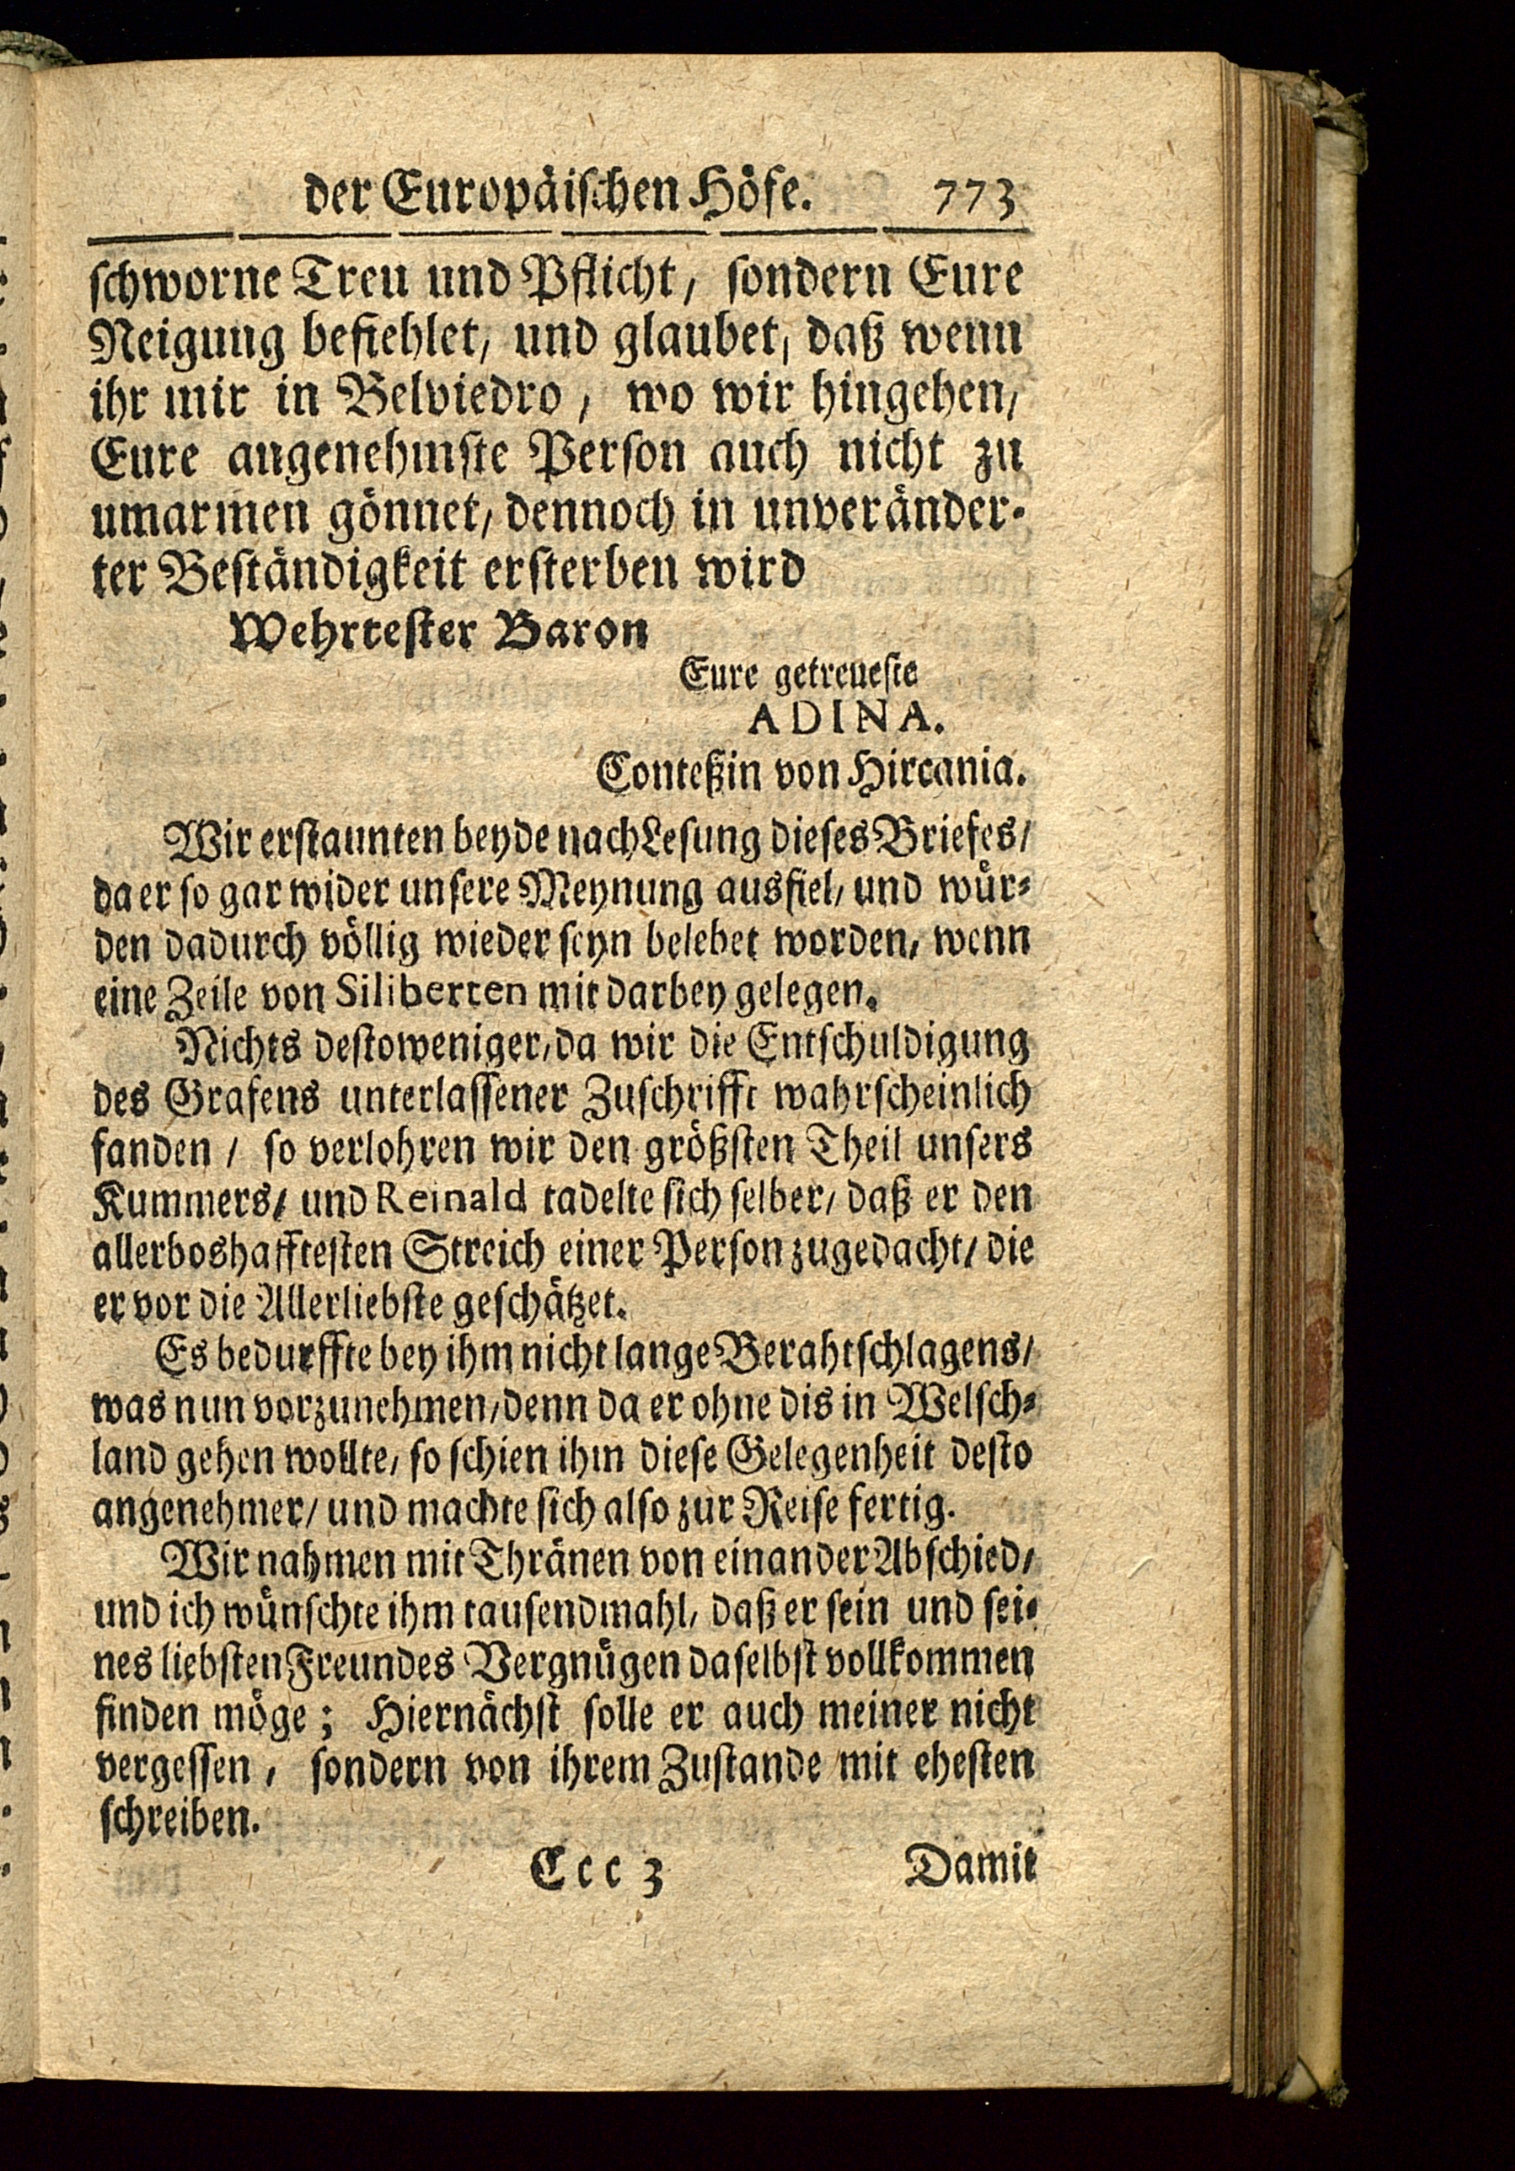 der Europäischen Höfe. 773
schworne Treu und Pflicht/ sondern Eure
Neigung befiehlet/ und glaubet/ daß wenn
ihr mir in Belviedro/ wo wir hingehen/
Eure angenehmste Person auch nicht zu
umarmen gönnet/ dennoch in unveränder-
ter Beständigkeit ersterben wird
Wehrtester Baron
Eure getreueste
ADINA.
Conteßin von Hircania.
Wir erstaunten beyde nach Lesung dieses Briefes/
da er so gar wider unsere Meynung ausfiel/ und wür-
den dadurch völlig wieder seyn belebet worden/ wenn
eine Zeile von Siliberten mit darbey gelegen.
Nichts destoweniger/ da wir die Entschuldigung
des Grafens unterlassener Zuschrifft wahrscheinlich
fanden/ so verlohren wir den größsten Theil unsers
Kummers/ und Reinald tadelte sich selber/ daß er den
allerboshafftesten Streich einer Person zugedacht/ die
er vor die Allerliebste geschätzet.
Es bedurffte bey ihm nicht lange Berahtschlagens/
was nun vorzunehmen/ denn da er ohne dis in Welsch-
land gehen wollte/ so schien ihm diese Gelegenheit desto
angenehmer/ und machte sich also zur Reise fertig.
Wir nahmen mit Thränen von einander Abschied/
und ich wünschte ihm tausendmahl/ daß er sein und sei-
nes liebsten Freundes Vergnügen daselbst vollkommen
finden möge; Hiernächst solle er auch meiner nicht
vergessen/ sondern von ihrem Zustande mit ehesten
schreiben.
Ccc 3 Damit